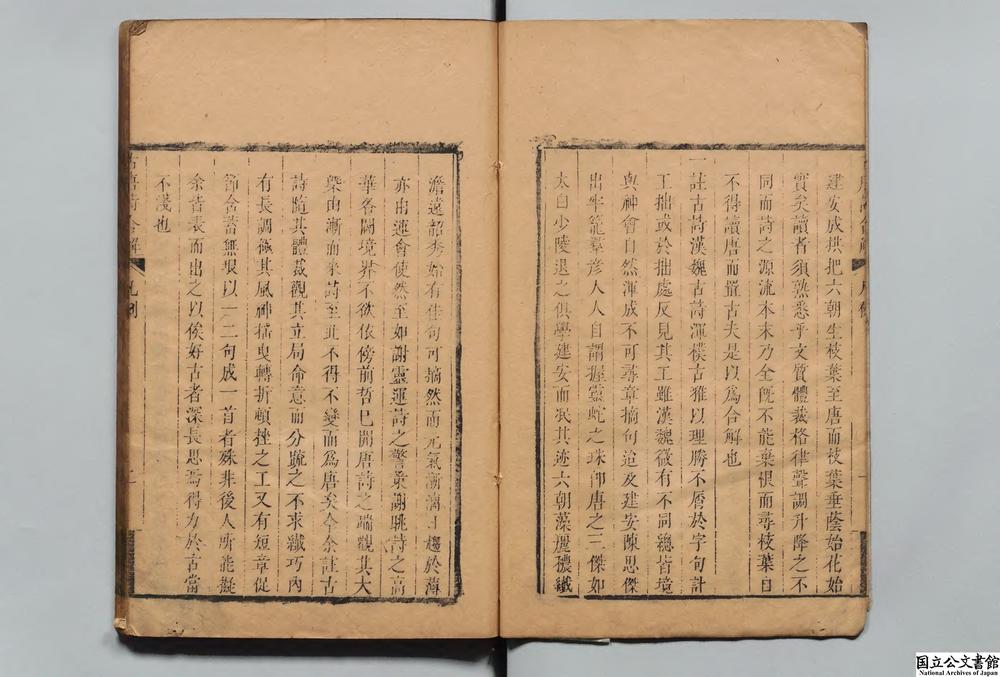 建安成拱把六朝生枝葉至唐而枝葉垂蔭始花始
實矣讀者須熟悉乎文質體裁格律聲調升降之不
同而詩之源流本末乃全旣不能棄根而尋枝葉自
不得讀唐而置古夫是以爲合解也
一註古詩漢魏古詩渾樸古雅以理勝不屑於字句計
工拙或於拙處反見其工雖漢魏微有不同總皆境
與神會自然渾成不可尋章摘句迨及建安陳思傑
出牢籠羣彥人人自謂握靈蛇之珠卽唐之三傑如
太白少陵退之俱學建安而泯其迹六朝藻麗穠纖
澹遠韶秀始有佳句可摘然而元氣漸漓日趨於薄
亦由運會使然至如謝靈運詩之警策謝眺詩之高
華各闢境界不欲依傍前哲已開唐詩之端觀其大
槩由漸而來詩至此不得不變而爲唐矣今余註古
詩隨其體裁觀其立局命意而分疏之不求纖巧內
有長調極其風神搖曳轉折頓挫之工又有短章促
節含蓄無垠以一二句成一首者殊非後人所能擬
余皆表而出之以俟好古者深長思焉得力於古當
不淺也
古唐詩合解
凡例
国立公文書館
National Archives of Japan